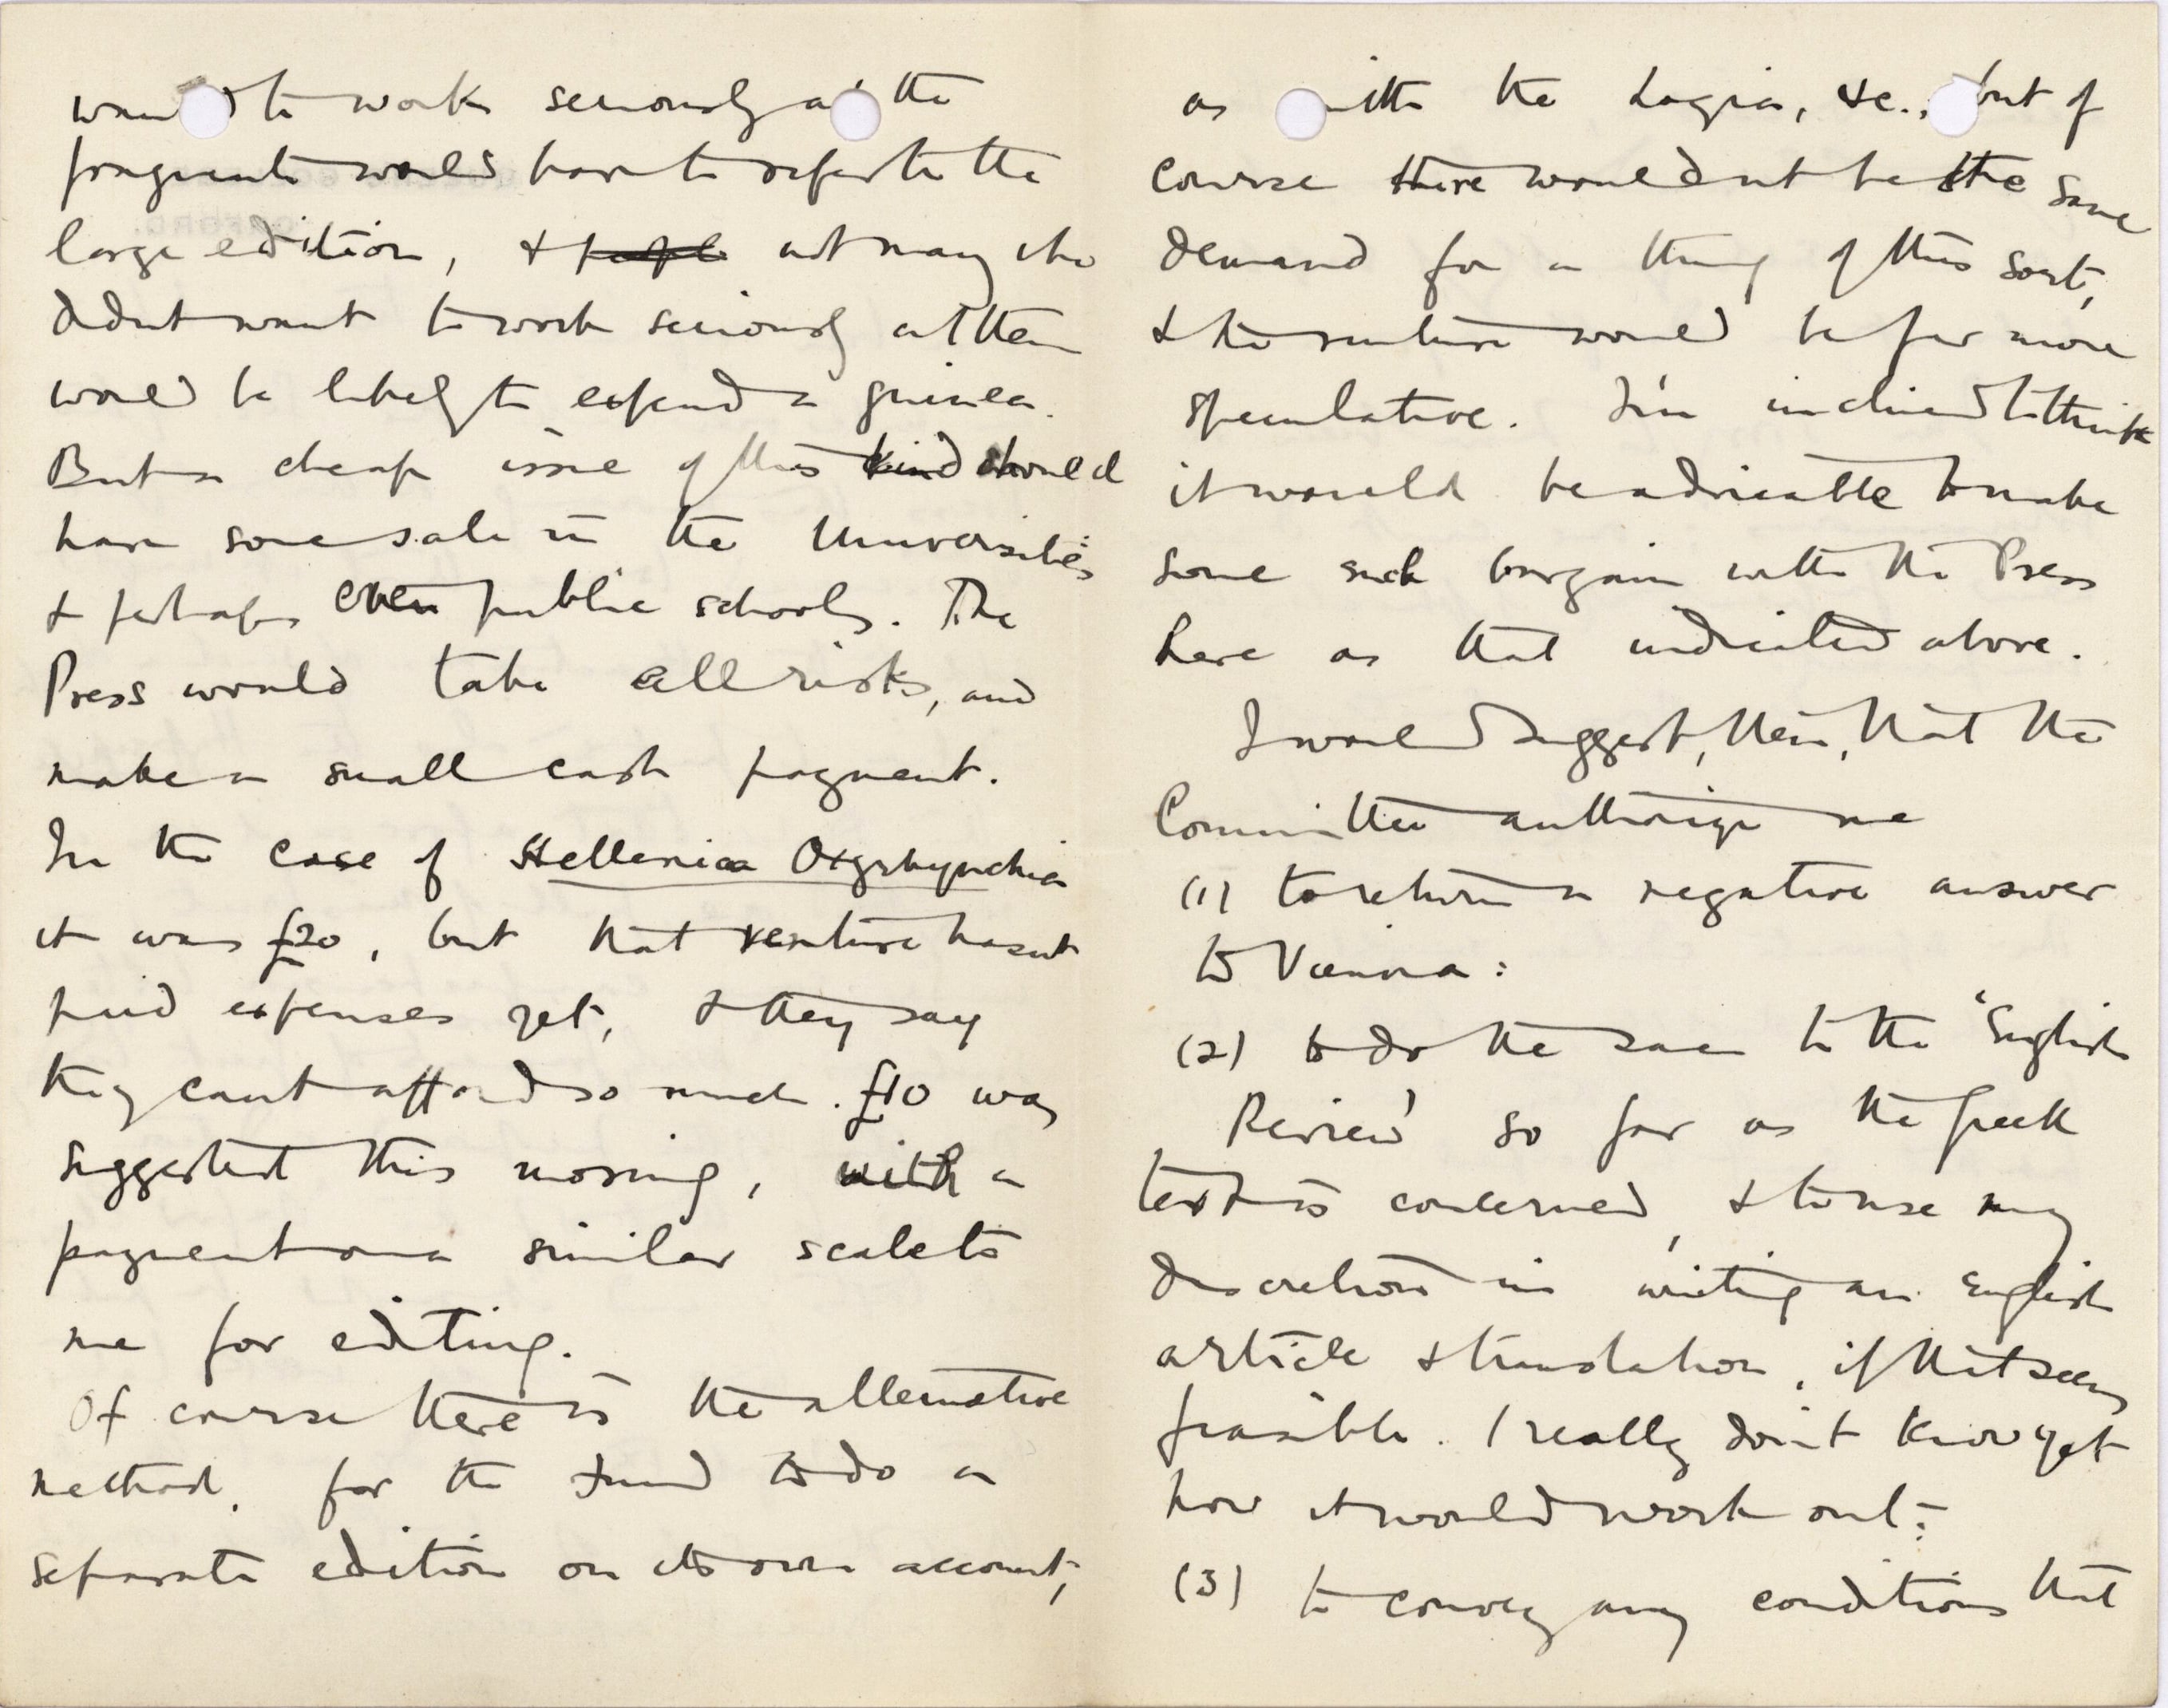 wanted to work seriously at the
fragments would have to refer to the
large edition, & people not many who
didnt want to work seriously at them
would be likely to expend a guinea.
But a cheap issue of this kind should
have some sale in the Universities
& perhaps even public schools. The
Press would take all risks, and
make a small cash payment.
In the case of Hellenica Oxyrhynchia
it was £20, but that venture hasnt
paid expenses yet, & they say
they cant afford so much. £10 was
suggested this morning, with a
payment on a similar scale to
me for editing.
Of course there is the alternative
method, for the Fund to do a
separate edition on its own account,
as with the Logia, &c., but of
course there wouldnt be the same
demand for a thing of this sort,
& the venture would be far more
speculative. I'm inclined to think
it would be advisable to make
some such bargain with the Press
here as that indicated above.
I would suggest, then, that the
Committee authorize me
(1) to return a negative answer
to Vienna:
(2) to do the same to the 'English
Review' so far as the Greek
text is concerned, & to use my
discretion in writing an English
article & translation, if that seems
feasible. I really don't know yet
how it would work out:
(3) to convey any conditions that